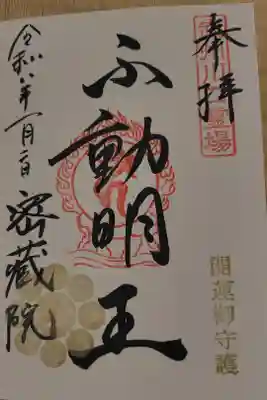 奉拝
不動明王
令和八年一月二日
密蔵院
開運御守護